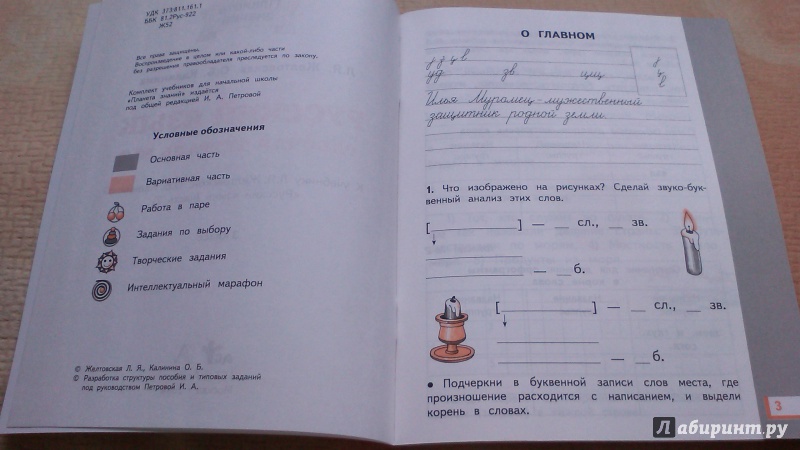 УДК 373:811.161.1
ББК 81.2Рус-922
Ж52
Все права защищены.
Воспроизведение в целом или какой-либо части
без разрешения правообладателя преследуется по закону.
Комплект учебников для начальной школы
«Планета знаний» издаётся
под общей редакцией И. А. Петровой
Условные обозначения
Основная часть
Вариативная часть
Работа в паре
Задания по выбору
Творческие задания
Интеллектуальный марафон
© Желтовская Л. Я., Калинина О. Б.
© Разработка структуры пособия и типовых заданий
под руководством Петровой И. А.
О ГЛАВНОМ
уд зв щиц
Илья Муромец-мужественный
защитник родной земли.
1. Что изображено на рисунках? Сделай звуко-бук-
венный анализ этих слов.
[ ] — __ сл., __ зв.
— __ б.
[ ] — __ сл., __ зв.
— __ б.
• Подчеркни в буквенной записи слов места, где
произношение расходится с написанием, и выдели
корень в словах.
3
Лабиринт.ру